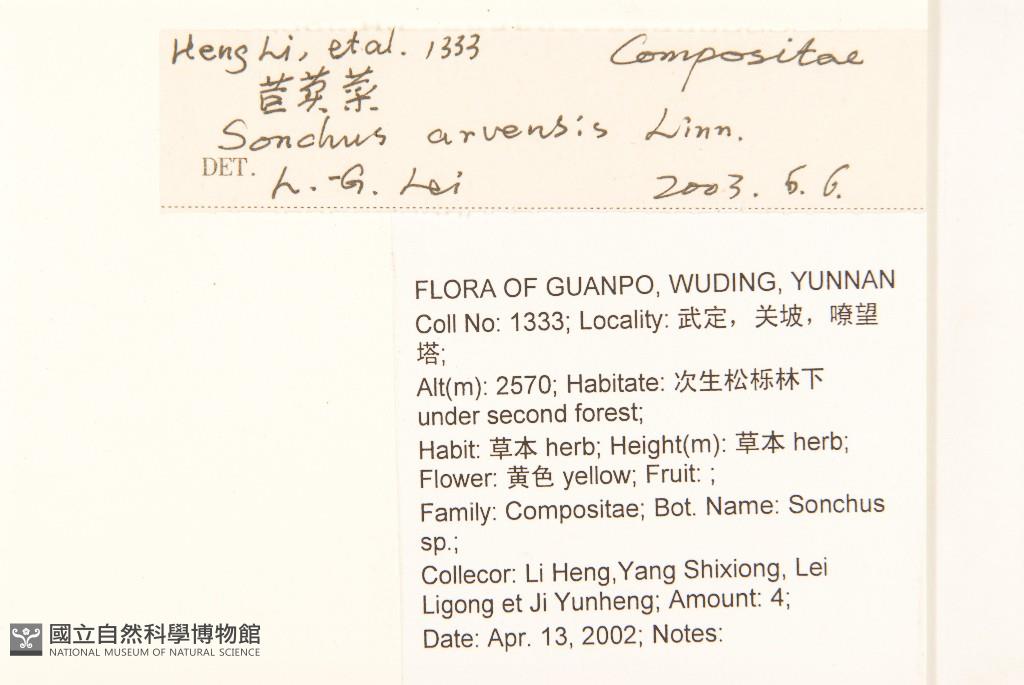 Heng Li, et al. 1333 Compositae
苣荬菜
Sonchus arvensis Linn.
DET. L.-G. Lei 2003. 6. 6.
FLORA OF GUANPO, WUDING, YUNNAN
Coll No: 1333; Locality: 武定，关坡，嘹望
塔;
Alt(m): 2570; Habitate: 次生松栎林下
under second forest;
Habit: 草本 herb; Height(m): 草本 herb;
Flower: 黄色 yellow; Fruit: ;
Family: Compositae; Bot. Name: Sonchus
sp.;
Collecor: Li Heng,Yang Shixiong, Lei
Ligong et Ji Yunheng; Amount: 4;
Date: Apr. 13, 2002; Notes:
國立自然科學博物館
NATIONAL MUSEUM OF NATURAL SCIENCE